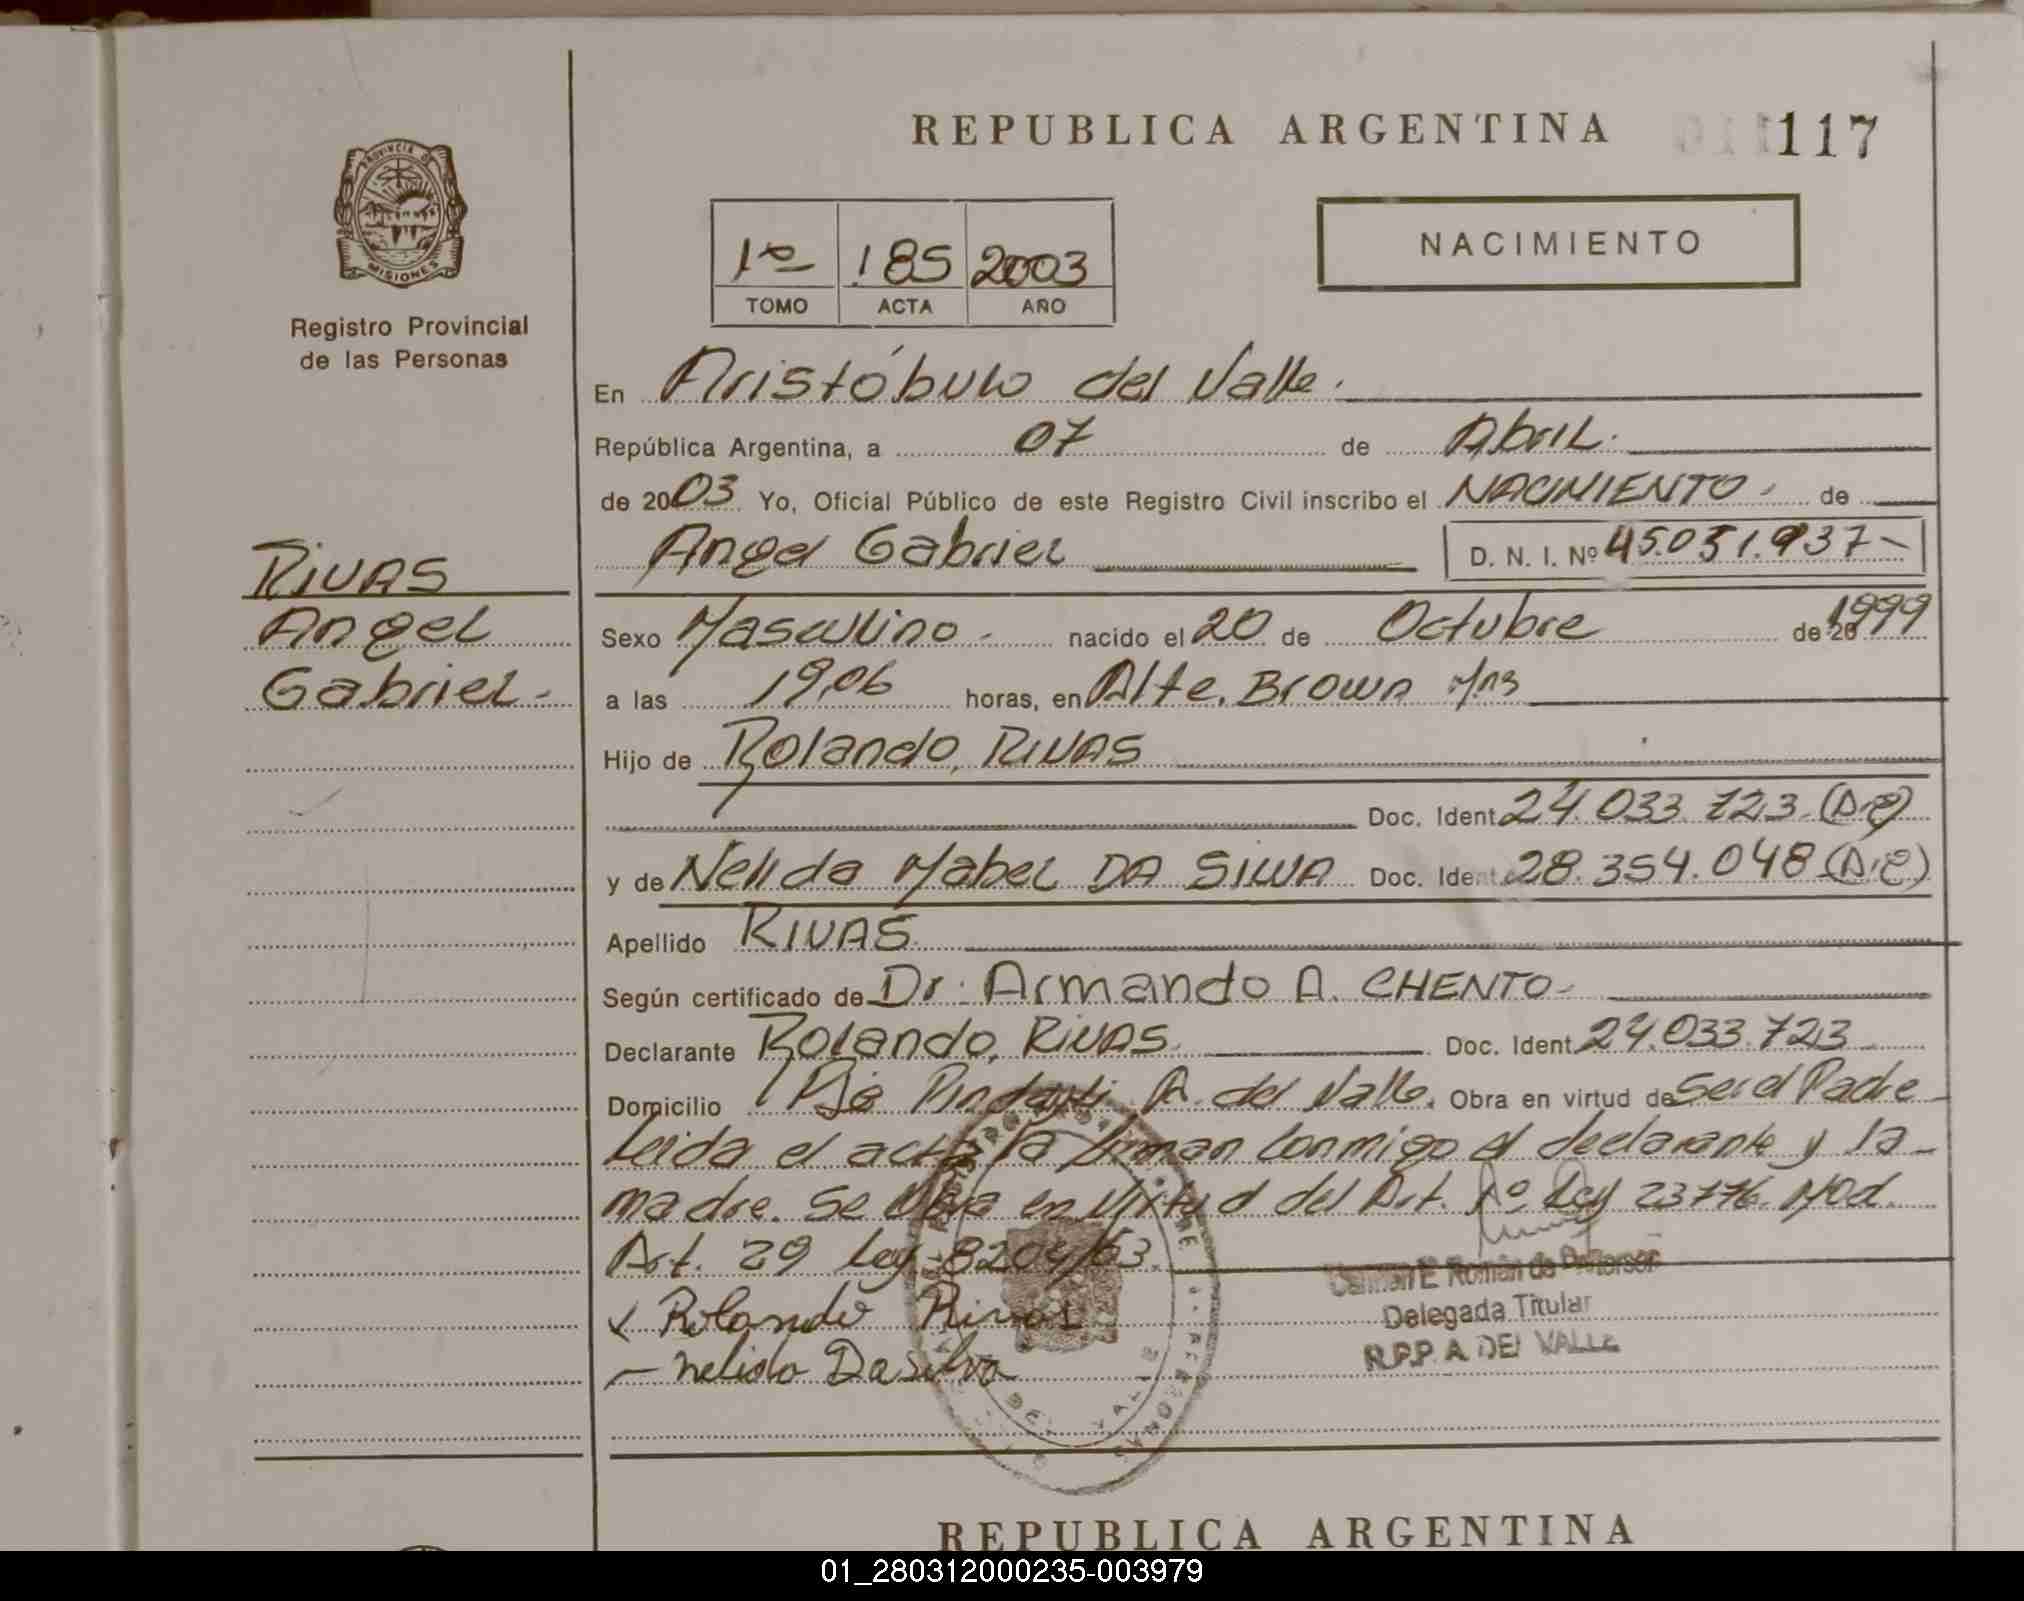 REPUBLICA ARGENTINA 117
PROVINCIA DE
MISIONES
Registro Provincial
de las Personas
1º 185 2003
TOMO ACTA AÑO
NACIMIENTO
En Aristóbulo del Valle.
República Argentina, a 07 de Abril.
de 2003 Yo, Oficial Público de este Registro Civil inscribo el NACIMIENTO. de
RIVAS
Angel
Gabriel.
Angel Gabriel D. N. I. Nº 45.051.937-
Sexo Masculino. nacido el 20 de Octubre de 20 1999
a las 19,06 horas, en Alte. Brown Mns
Hijo de Rolando, RIVAS
Doc. Ident. 24.033.723.
y de Nelida Mabel DA SILVA Doc. Ident. 28.354.048
Apellido RIVAS.
Según certificado de Dr. Armando A. CHENTO.
Declarante Rolando, RIVAS. Doc. Ident. 24.033.723
Domicilio Pje A. del Valle. Obra en virtud de Ser el Padre
Leida el acta la firman conmigo el declarante y la
madre. Se obra en virtud del Art. 1º Ley 23776. Mod.
Art. 29 Ley 8204/63.
Rolando Rivas
Nelida Da Silva
Román de
Delegada Titular
R.P.P. A. DEL VALLE
REPUBLICA ARGENTINA
01_280312000235-003979